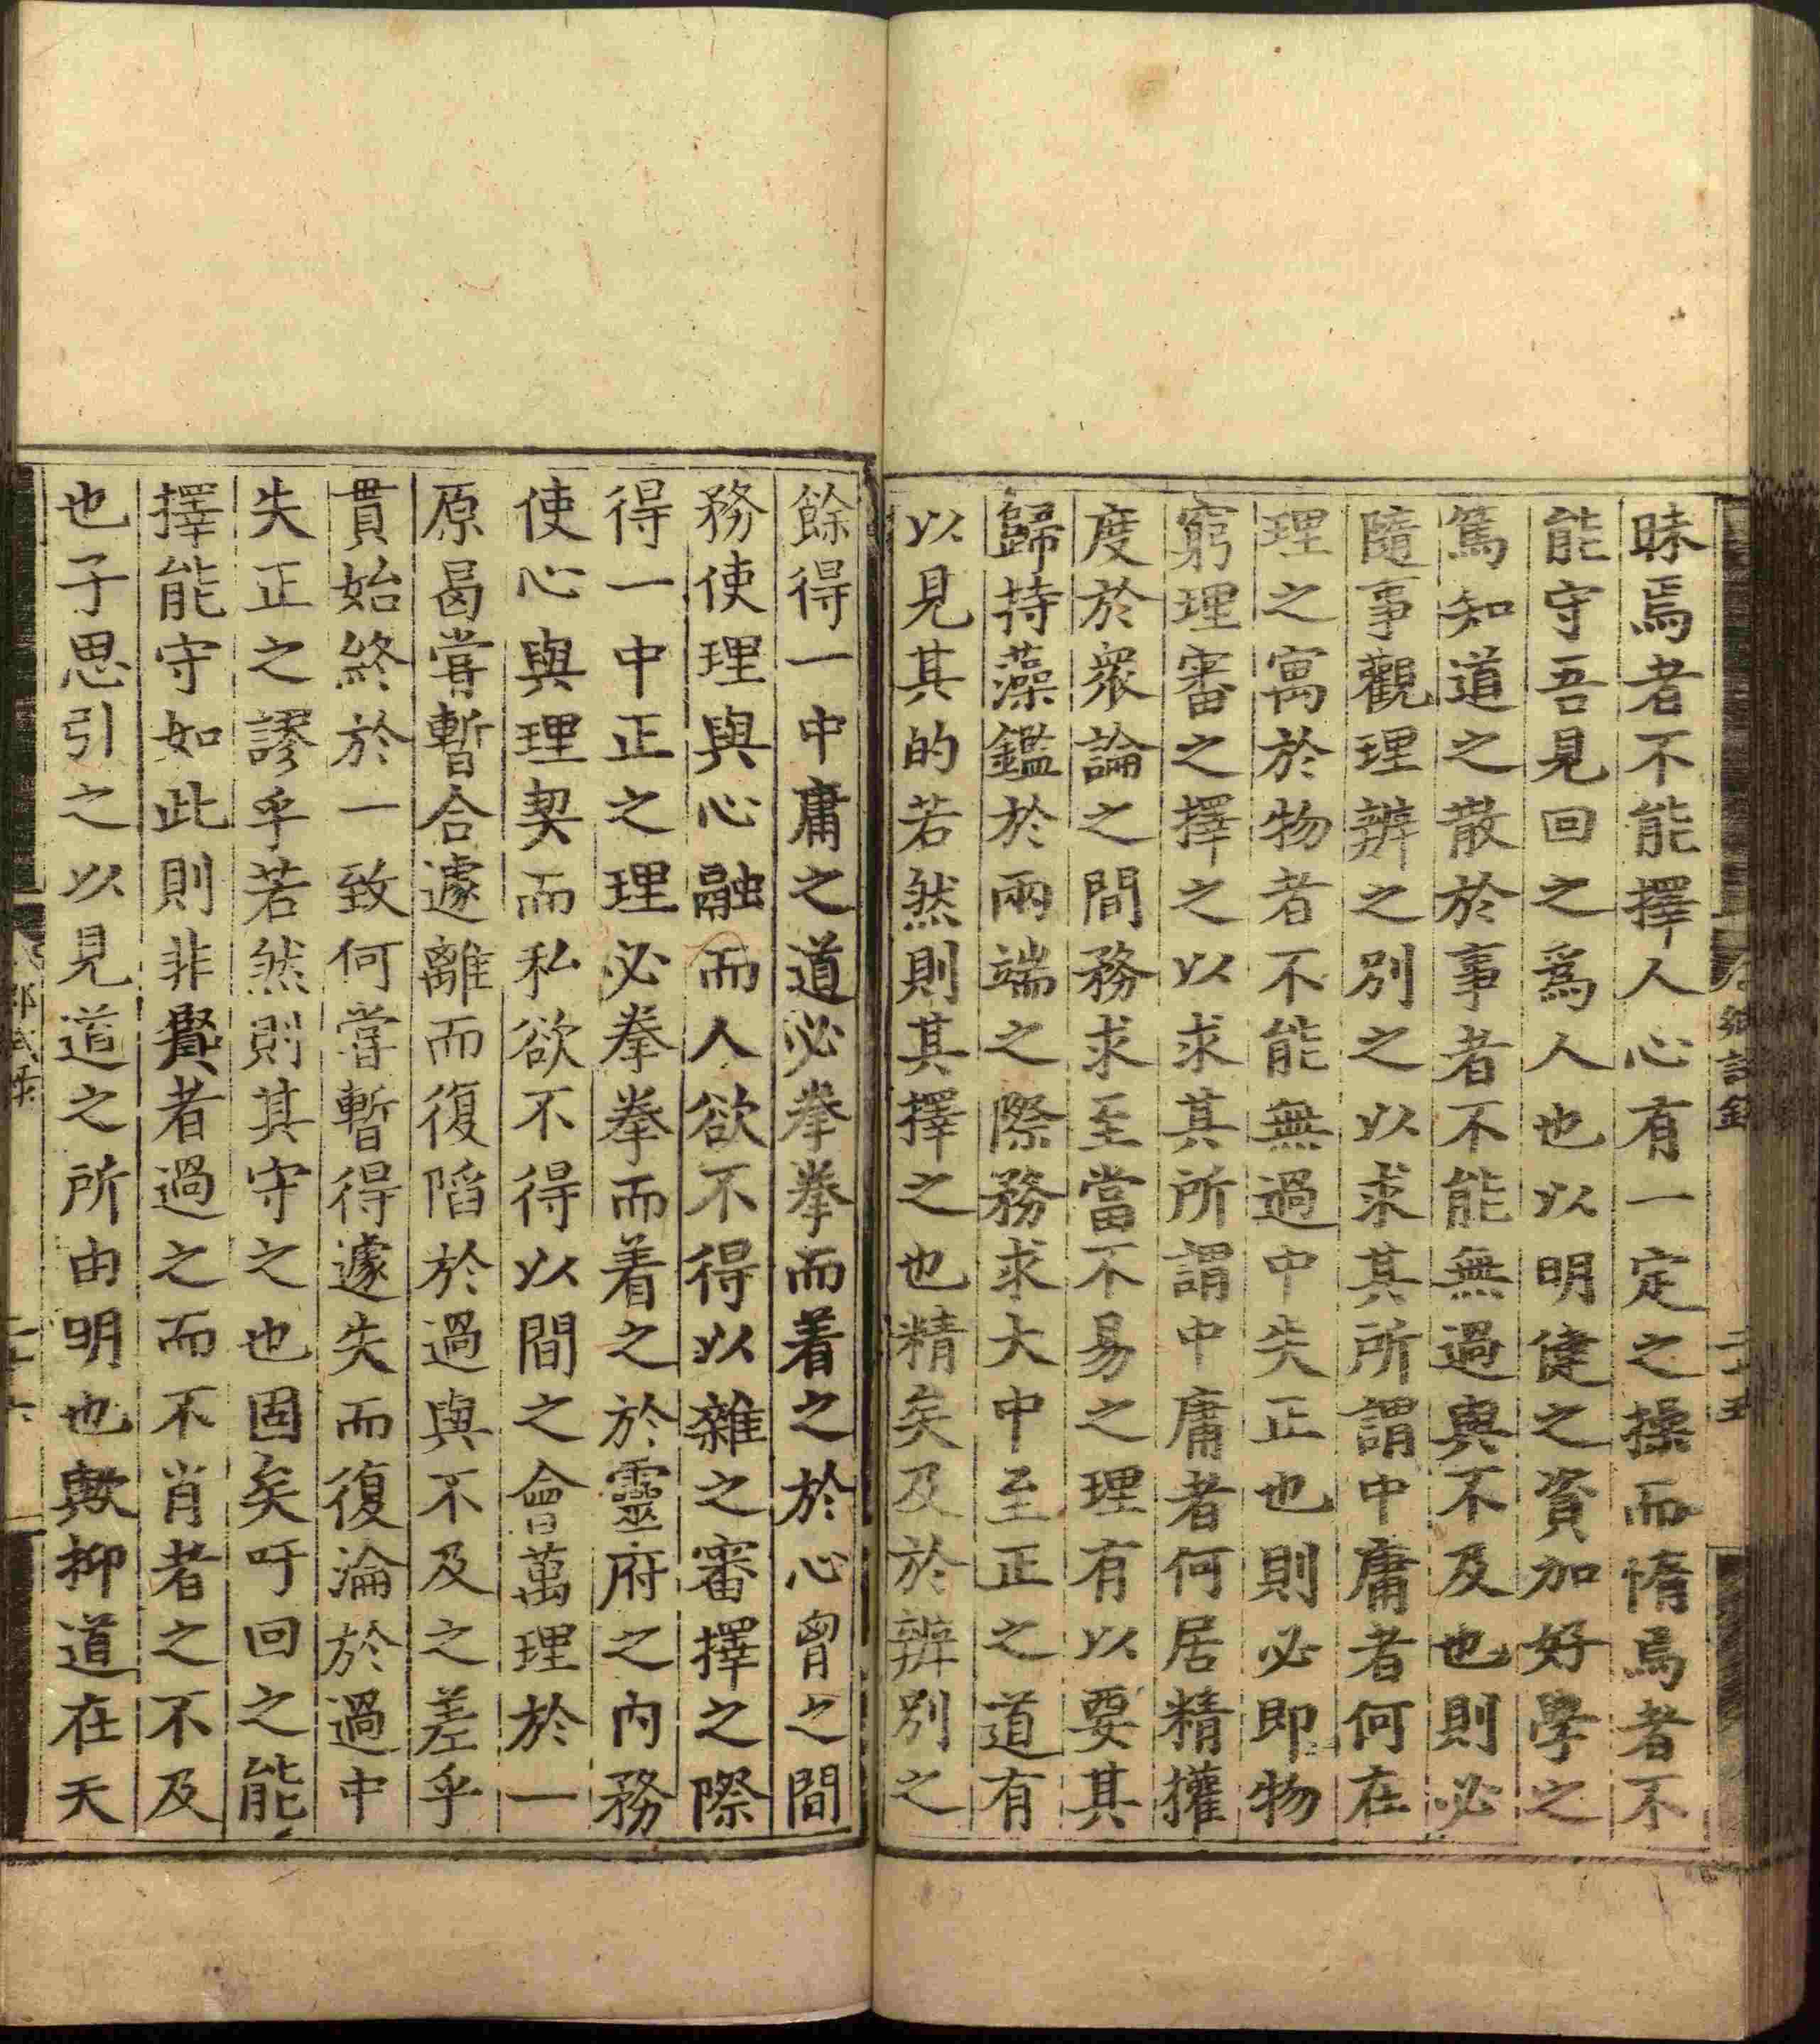 鄉試錄
二十五
昧焉者不能擇人心有一定之操而惰焉者不
能守吾見回之爲人也以明健之資加好學之
篤知道之散於事者不能無過與不及也則必
隨事觀理辨之別之以求其所謂中庸者何在
理之寓於物者不能無過中失正也則必即物
窮理審之擇之以求其所謂中庸者何居精權
度於衆論之間務求至當不易之理有以要其
歸持藻鑑於兩端之際務求大中至正之道有
以見其的若然則其擇之也精矣及於辨別之
餘得一中庸之道必拳拳而着之於心胷之間
務使理與心融而人欲不得以雜之審擇之際
得一中正之理必拳拳而着之於靈府之內務
使心與理契而私欲不得以間之會萬理於一
原曷嘗暫合遽離而復陷於過與不及之差乎
貫始終於一致何嘗暫得遽失而復淪於過中
失正之謬乎若然則其守之也固矣吁回之能
擇能守如此則非賢者過之而不肖者之不及
也子思引之以見道之所由明也歟抑道在天